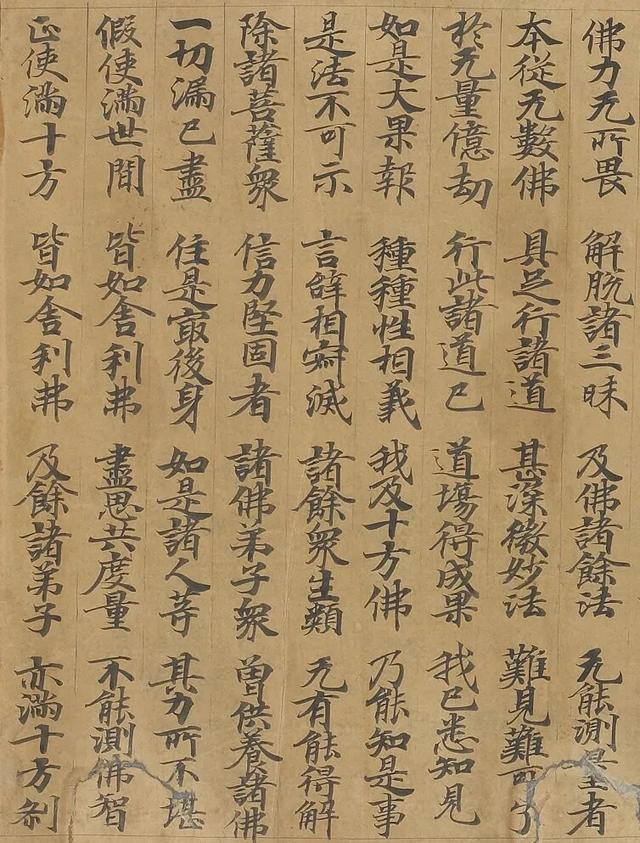 佛力无所畏 解脱諸三昧 及佛諸餘法 无能測量者
本從无數佛 具足行諸道 甚深微妙法 難見難可了
於无量億劫 行此諸道已 道場得成果 我已悉知見
如是大果報 種種性相義 我及十方佛 乃能知是事
是法不可示 言辝相寂滅 諸餘衆生類 无有能得解
除諸菩薩衆 信力堅固者 諸佛弟子衆 曽供養諸佛
一切漏已盡 住是冣後身 如是諸人等 其力所不堪
假使滿世間 皆如舎利弗 盡思共度量 不能測佛智
正使滿十方 皆如舎利弗 及餘諸弟子 亦滿十方刹